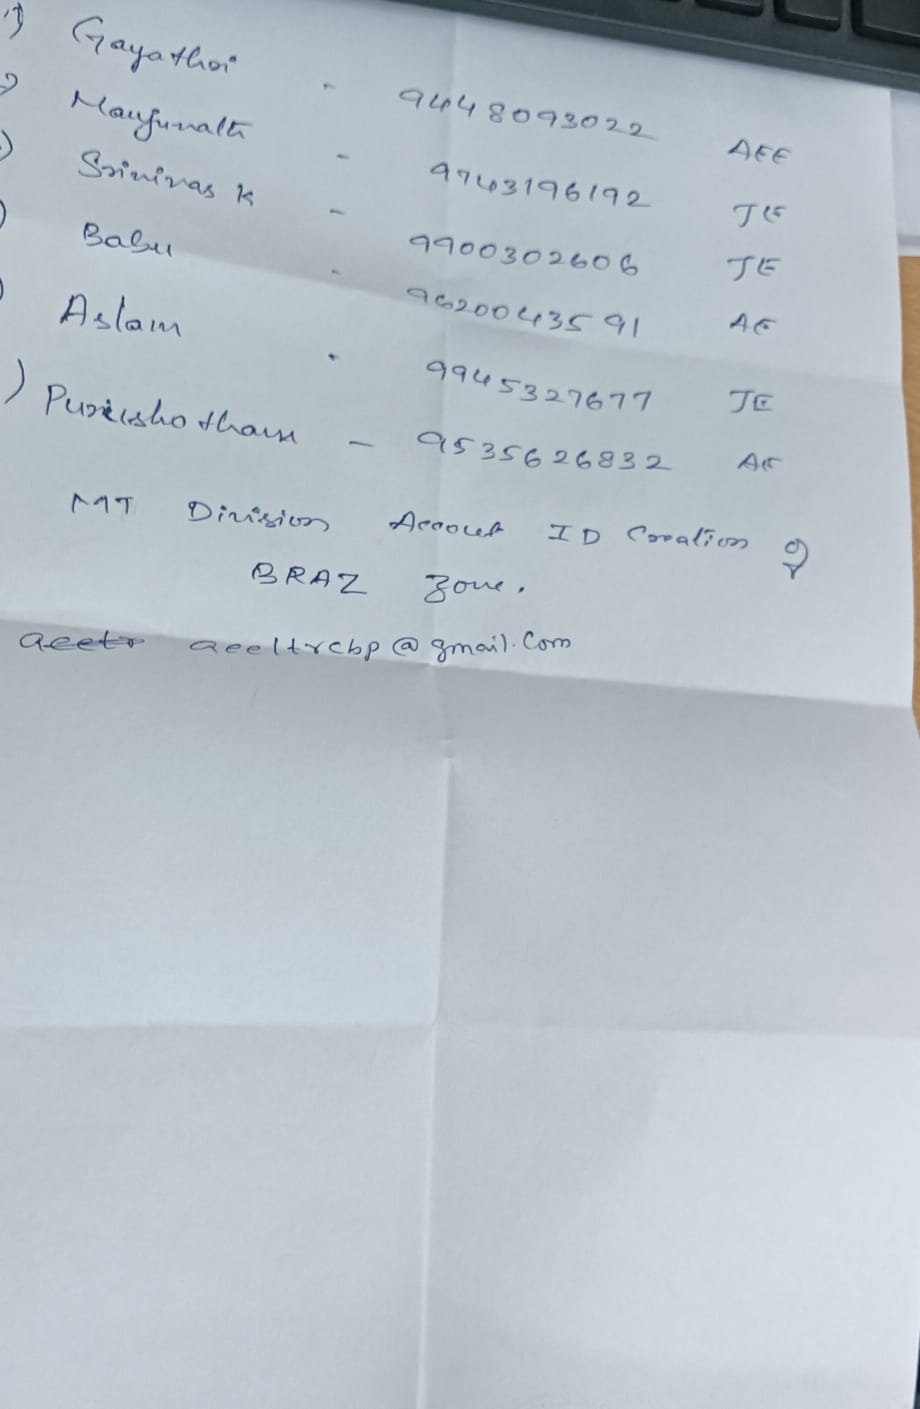 1) Gayathri - 9448093022 AEE
2) Manjunath - 9743196192 JE
) Srinivas K - 9900302606 JE
) Babu - 9620043591 AE
) Aslam - 9945327677 JE
) Purushotham - 9535626832 AE
MT Division Account ID Creation of
BRAZ Zone.
aeeltrcbp@gmail.com